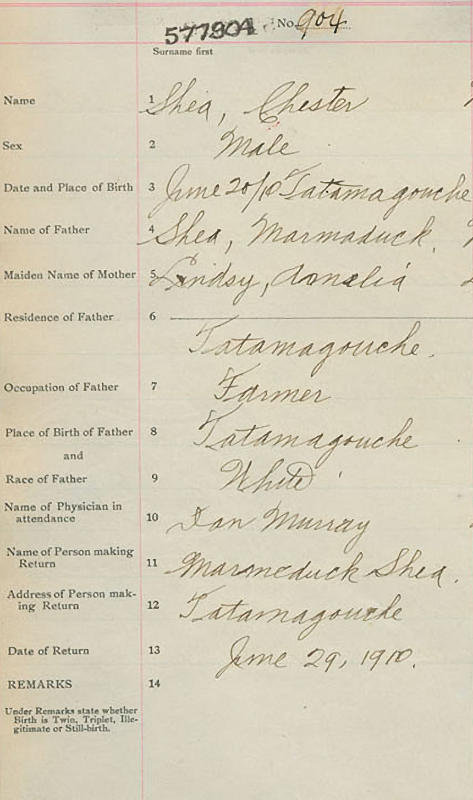 577904 No. 904
Surname first
Name 1 Shea, Chester
Sex 2 Male
Date and Place of Birth 3 June 20/10 Tatamagouche
Name of Father 4 Shea, Marmaduck.
Maiden Name of Mother 5 Lindsy, Amelia
Residence of Father 6
Tatamagouche.
Occupation of Father 7 Farmer
Place of Birth of Father 8 Tatamagouche
and
Race of Father 9 White
Name of Physician in
attendance 10 Dan Murray
Name of Person making
Return 11 Marmeduck Shea.
Address of Person mak-
ing Return 12 Tatamagouche
Date of Return 13 June 29, 1910.
REMARKS 14
Under Remarks state whether
Birth is Twin, Triplet, Ille-
gitimate or Still-birth.